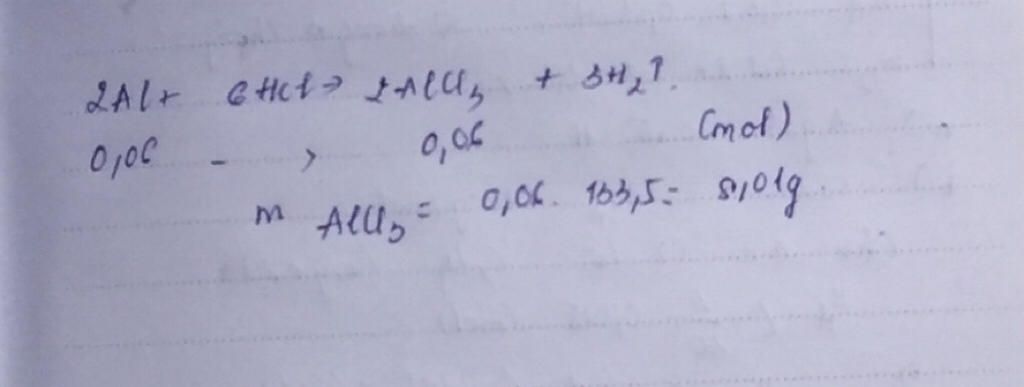 2Al + 6HCl → 2AlCl₃ + 3H₂↑.
0,06 - > 0,06 (mol)
m AlCl₃ = 0,06. 133,5 = 8,01g